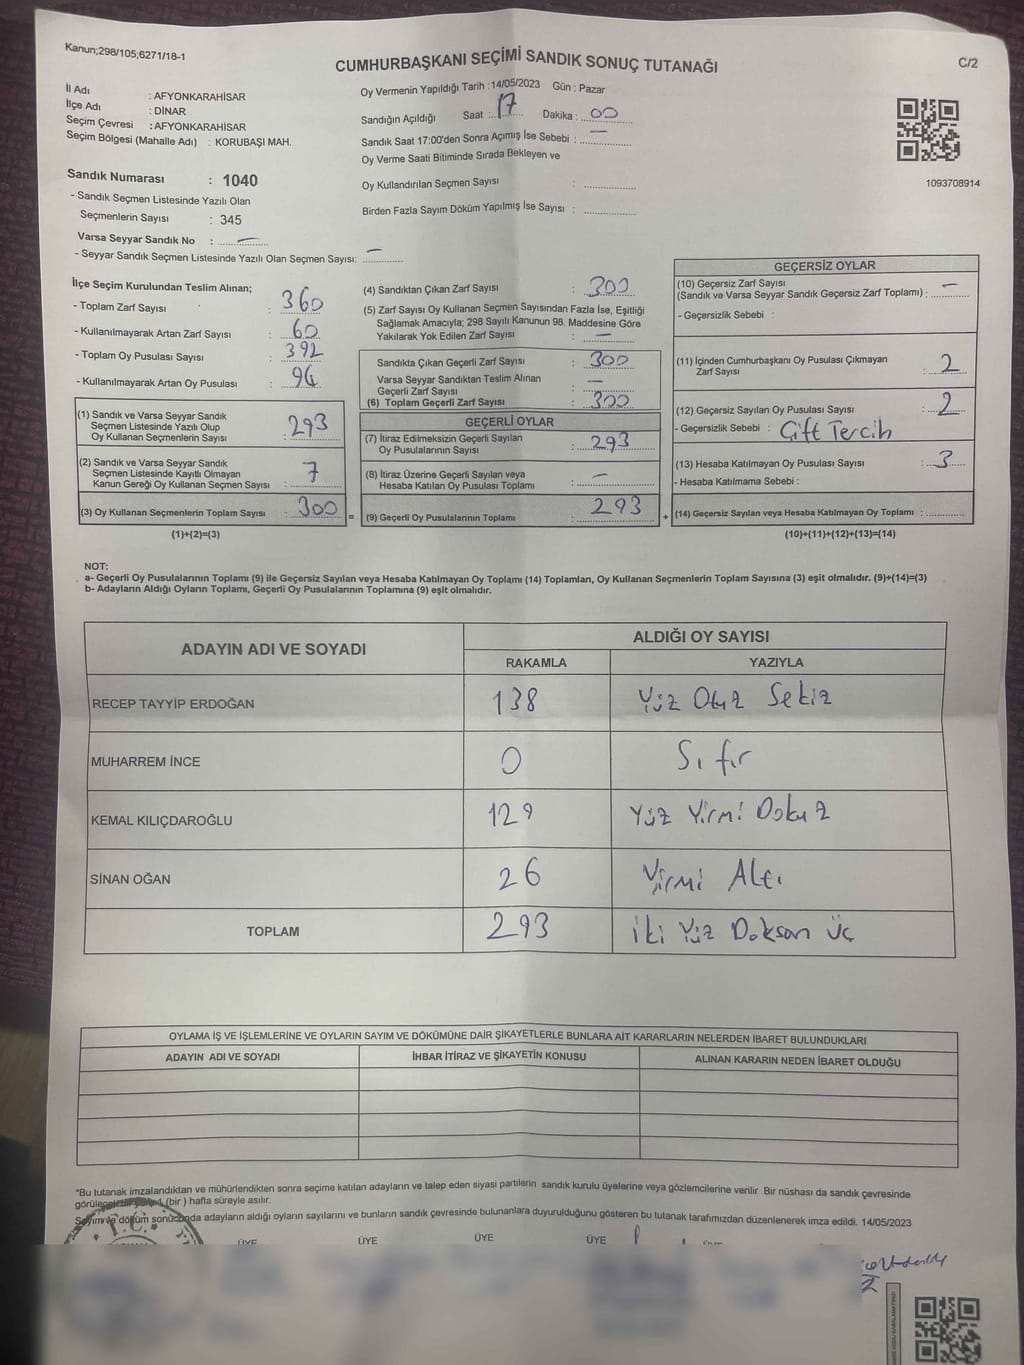 Kanun;298/105;6271/18-1
CUMHURBAŞKANI SEÇİMİ SANDIK SONUÇ TUTANAĞI
C/2
İl Adı : AFYONKARAHİSAR
İlçe Adı : DİNAR
Seçim Çevresi : AFYONKARAHİSAR
Seçim Bölgesi (Mahalle Adı) : KORUBAŞI MAH.
Oy Vermenin Yapıldığı Tarih :14/05/2023 Gün : Pazar
Sandığın Açıldığı Saat : 17 Dakika : 00
Sandık Saat 17:00'den Sonra Açımış İse Sebebi : —
Oy Verme Saati Bitiminde Sırada Bekleyen ve
Oy Kullandırılan Seçmen Sayısı :
Birden Fazla Sayım Döküm Yapılmış İse Sayısı :
1093708914
Sandık Numarası : 1040
- Sandık Seçmen Listesinde Yazılı Olan
Seçmenlerin Sayısı : 345
Varsa Seyyar Sandık No : —
- Seyyar Sandık Seçmen Listesinde Yazılı Olan Seçmen Sayısı: —
İlçe Seçim Kurulundan Teslim Alınan;
- Toplam Zarf Sayısı : 360
- Kullanılmayarak Artan Zarf Sayısı : 60
- Toplam Oy Pusulası Sayısı : 392
- Kullanılmayarak Artan Oy Pusulası : 94
(1) Sandık ve Varsa Seyyar Sandık
Seçmen Listesinde Yazılı Olup
Oy Kullanan Seçmenlerin Sayısı : 293
(2) Sandık ve Varsa Seyyar Sandık
Seçmen Listesinde Kayıtlı Olmayan
Kanun Gereği Oy Kullanan Seçmen Sayısı : 7
(3) Oy Kullanan Seçmenlerin Toplam Sayısı : 300
(1)+(2)=(3)
=
(4) Sandıktan Çıkan Zarf Sayısı : 300
(5) Zarf Sayısı Oy Kullanan Seçmen Sayısından Fazla İse, Eşitliği
Sağlamak Amacıyla; 298 Sayılı Kanunun 98. Maddesine Göre
Yakılarak Yok Edilen Zarf Sayısı : —
Sandıkta Çıkan Geçerli Zarf Sayısı : 300
Varsa Seyyar Sandıktan Teslim Alınan
Geçerli Zarf Sayısı : —
(6) Toplam Geçerli Zarf Sayısı : 300
GEÇERLİ OYLAR
(7) İtiraz Edilmeksizin Geçerli Sayılan
Oy Pusulalarının Sayısı : 293
(8) İtiraz Üzerine Geçerli Sayılan veya
Hesaba Katılan Oy Pusulası Toplamı : —
(9) Geçerli Oy Pusulalarının Toplamı : 293
+
GEÇERSİZ OYLAR
(10) Geçersiz Zarf Sayısı
(Sandık ve Varsa Seyyar Sandık Geçersiz Zarf Toplamı) : —
- Geçersizlik Sebebi :
(11) İçinden Cumhurbaşkanı Oy Pusulası Çıkmayan
Zarf Sayısı : 2
(12) Geçersiz Sayılan Oy Pusulası Sayısı : 2
- Geçersizlik Sebebi : Çift Tercih
(13) Hesaba Katılmayan Oy Pusulası Sayısı : 3
- Hesaba Katılmama Sebebi :
(14) Geçersiz Sayılan veya Hesaba Katılmayan Oy Toplamı :
(10)+(11)+(12)+(13)=(14)
NOT:
a- Geçerli Oy Pusulalarının Toplamı (9) ile Geçersiz Sayılan veya Hesaba Katılmayan Oy Toplamı (14) Toplamları, Oy Kullanan Seçmenlerin Toplam Sayısına (3) eşit olmalıdır. (9)+(14)=(3)
b- Adayların Aldığı Oyların Toplamı, Geçerli Oy Pusulalarının Toplamına (9) eşit olmalıdır.
ADAYIN ADI VE SOYADI
ALDIĞI OY SAYISI
RAKAMLA YAZIYLA
RECEP TAYYİP ERDOĞAN 138 Yüz Otuz Sekiz
MUHARREM İNCE 0 Sıfır
KEMAL KILIÇDAROĞLU 129 Yüz Yirmi Dokuz
SİNAN OĞAN 26 Yirmi Altı
TOPLAM 293 İki Yüz Doksan Üç
OYLAMA İŞ VE İŞLEMLERİNE VE OYLARIN SAYIM VE DÖKÜMÜNE DAİR ŞİKAYETLERLE BUNLARA AİT KARARLARIN NELERDEN İBARET BULUNDUKLARI
ADAYIN ADI VE SOYADI İHBAR İTİRAZ VE ŞİKAYETİN KONUSU ALINAN KARARIN NEDEN İBARET OLDUĞU
*Bu tutanak imzalandıktan ve mühürlendikten sonra seçime katılan adayların ve talep eden siyasi partilerin sandık kurulu üyelerine veya gözlemcilerine verilir .Bir nüshası da sandık çevresinde
(bir ) hafta süreyle asılır.
Sayım ve döküm sonucunda adayların aldığı oyların sayılarını ve bunların sandık çevresinde bulunanlara duyurulduğunu gösteren bu tutanak tarafımızdan düzenlenerek imza edildi. 14/05/2023
T.C.
ÜYE ÜYE ÜYE ÜYE